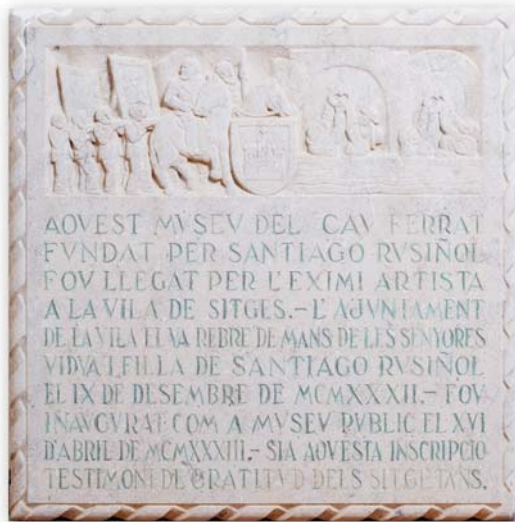 AQVEST MVSEV DEL CAV FERRAT
FVNDAT PER SANTIAGO RVSIÑOL
FOV LLEGAT PER L'EXIMI ARTISTA
A LA VILA DE SITGES.–L'AJVNTAMENT
DE LA VILA EL VA REBRE DE MANS DE LES SENYORES
VIDVA I FILLA DE SANTIAGO RVSIÑOL
EL IX DE DESEMBRE DE MCMXXXII.– FOV
INAVGVRAT COM A MVSEV PVBLIC EL XVI
D'ABRIL DE MCMXXXIII.– SIA AQVESTA INSCRIPCIO
TESTIMONI DE GRATITVD DELS SITGETANS.